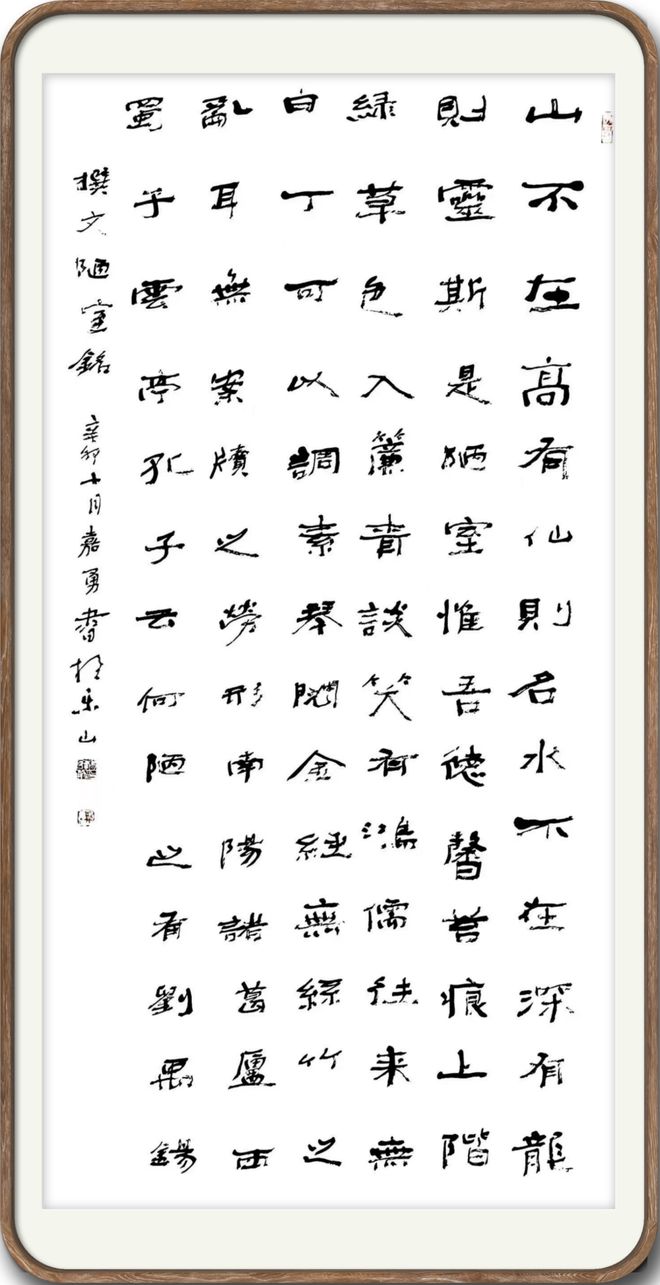 山不在高有仙則名水不在深有龍
則靈斯是陋室惟吾德馨苔痕上階
緑草色入簾青談笑有鴻儒往来無
白丁可以調素琴閱金經無絲竹之
亂耳無案牘之勞形南陽諸葛廬西
蜀子雲亭孔子云何陋之有劉禹錫
撰文陋室銘 辛卯十月嘉勇書於乐山